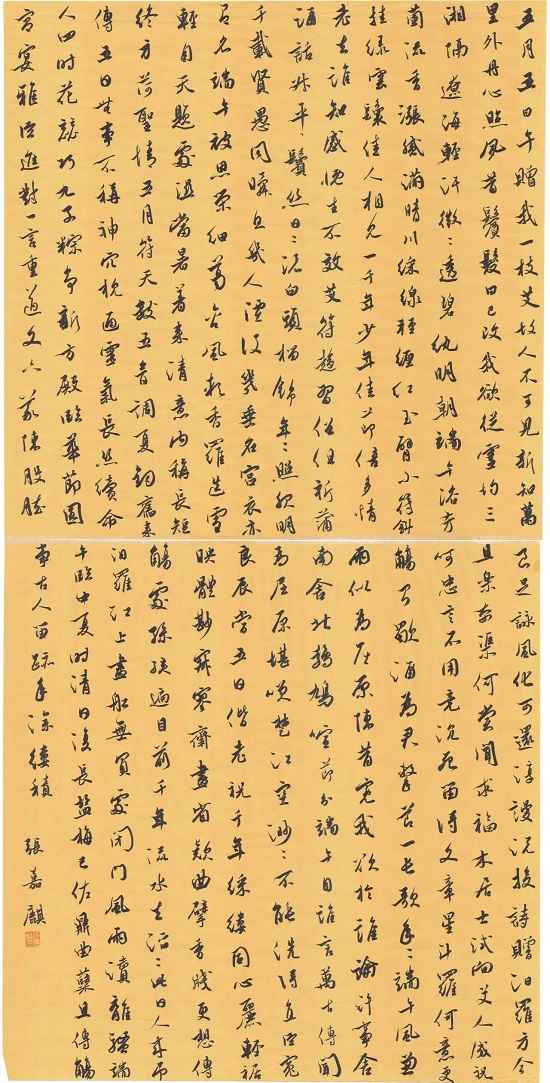 五月五日午贈我一枝艾故人不可見新知萬
里外丹心照夙昔鬢髮日已改我欲從靈均三
湘隔遼海輕汗微微透碧紈明朝端午浴芳
蘭流香漲膩滿晴川綵線輕纏紅玉臂小符斜
挂綠雲鬟佳人相見一千年少年佳節倍多情
老去誰知感慨生不效艾符趨習俗但祈蒲
酒話昇平鬢絲日日添白頭榴錦年年照眼明
千載賢愚同瞬息幾人湮没幾垂名宮衣亦
有名端午被恩榮細葛含風軟香羅疊雪
輕自天題處濕當暑著來清意內稱長短
終身荷聖情五月符天數五音調夏鈞舊來
傳五日無事不稱神穴枕通靈氣長絲續命
人四時花競巧九子粽爭新方殿臨華節圓
宮宴雅臣進對一言重遒文六義陳股肱
良足詠風化可還淳謾説投詩贈汨羅方今
且樂奈渠何嘗聞求福木居士試向艾人成祝
呵忠言不用竟沉死留得文章星斗羅何意更
觴昌歜酒為君擊節一長歌年年端午風兼
雨似為屈原陳昔冤我欲於誰論許事舍
南舍北鵓鳩喧節分端午自誰言萬古傳聞
為屈原堪笑楚江空渺渺不能洗得直臣冤
良辰當五日偕老祝千年綵縷同心麗輕裾
映體鮮寂寥齋畫省款曲擘香牋更想傳
觴處孫孩遍目前千年流水去滔滔此日人來弔
汨羅江上畫船無買處閉門風雨讀離騷端
午臨中夏時清日復長鹽梅已佐鼎曲糵且傳觴
事古人留跡年深縷積
張嘉麒